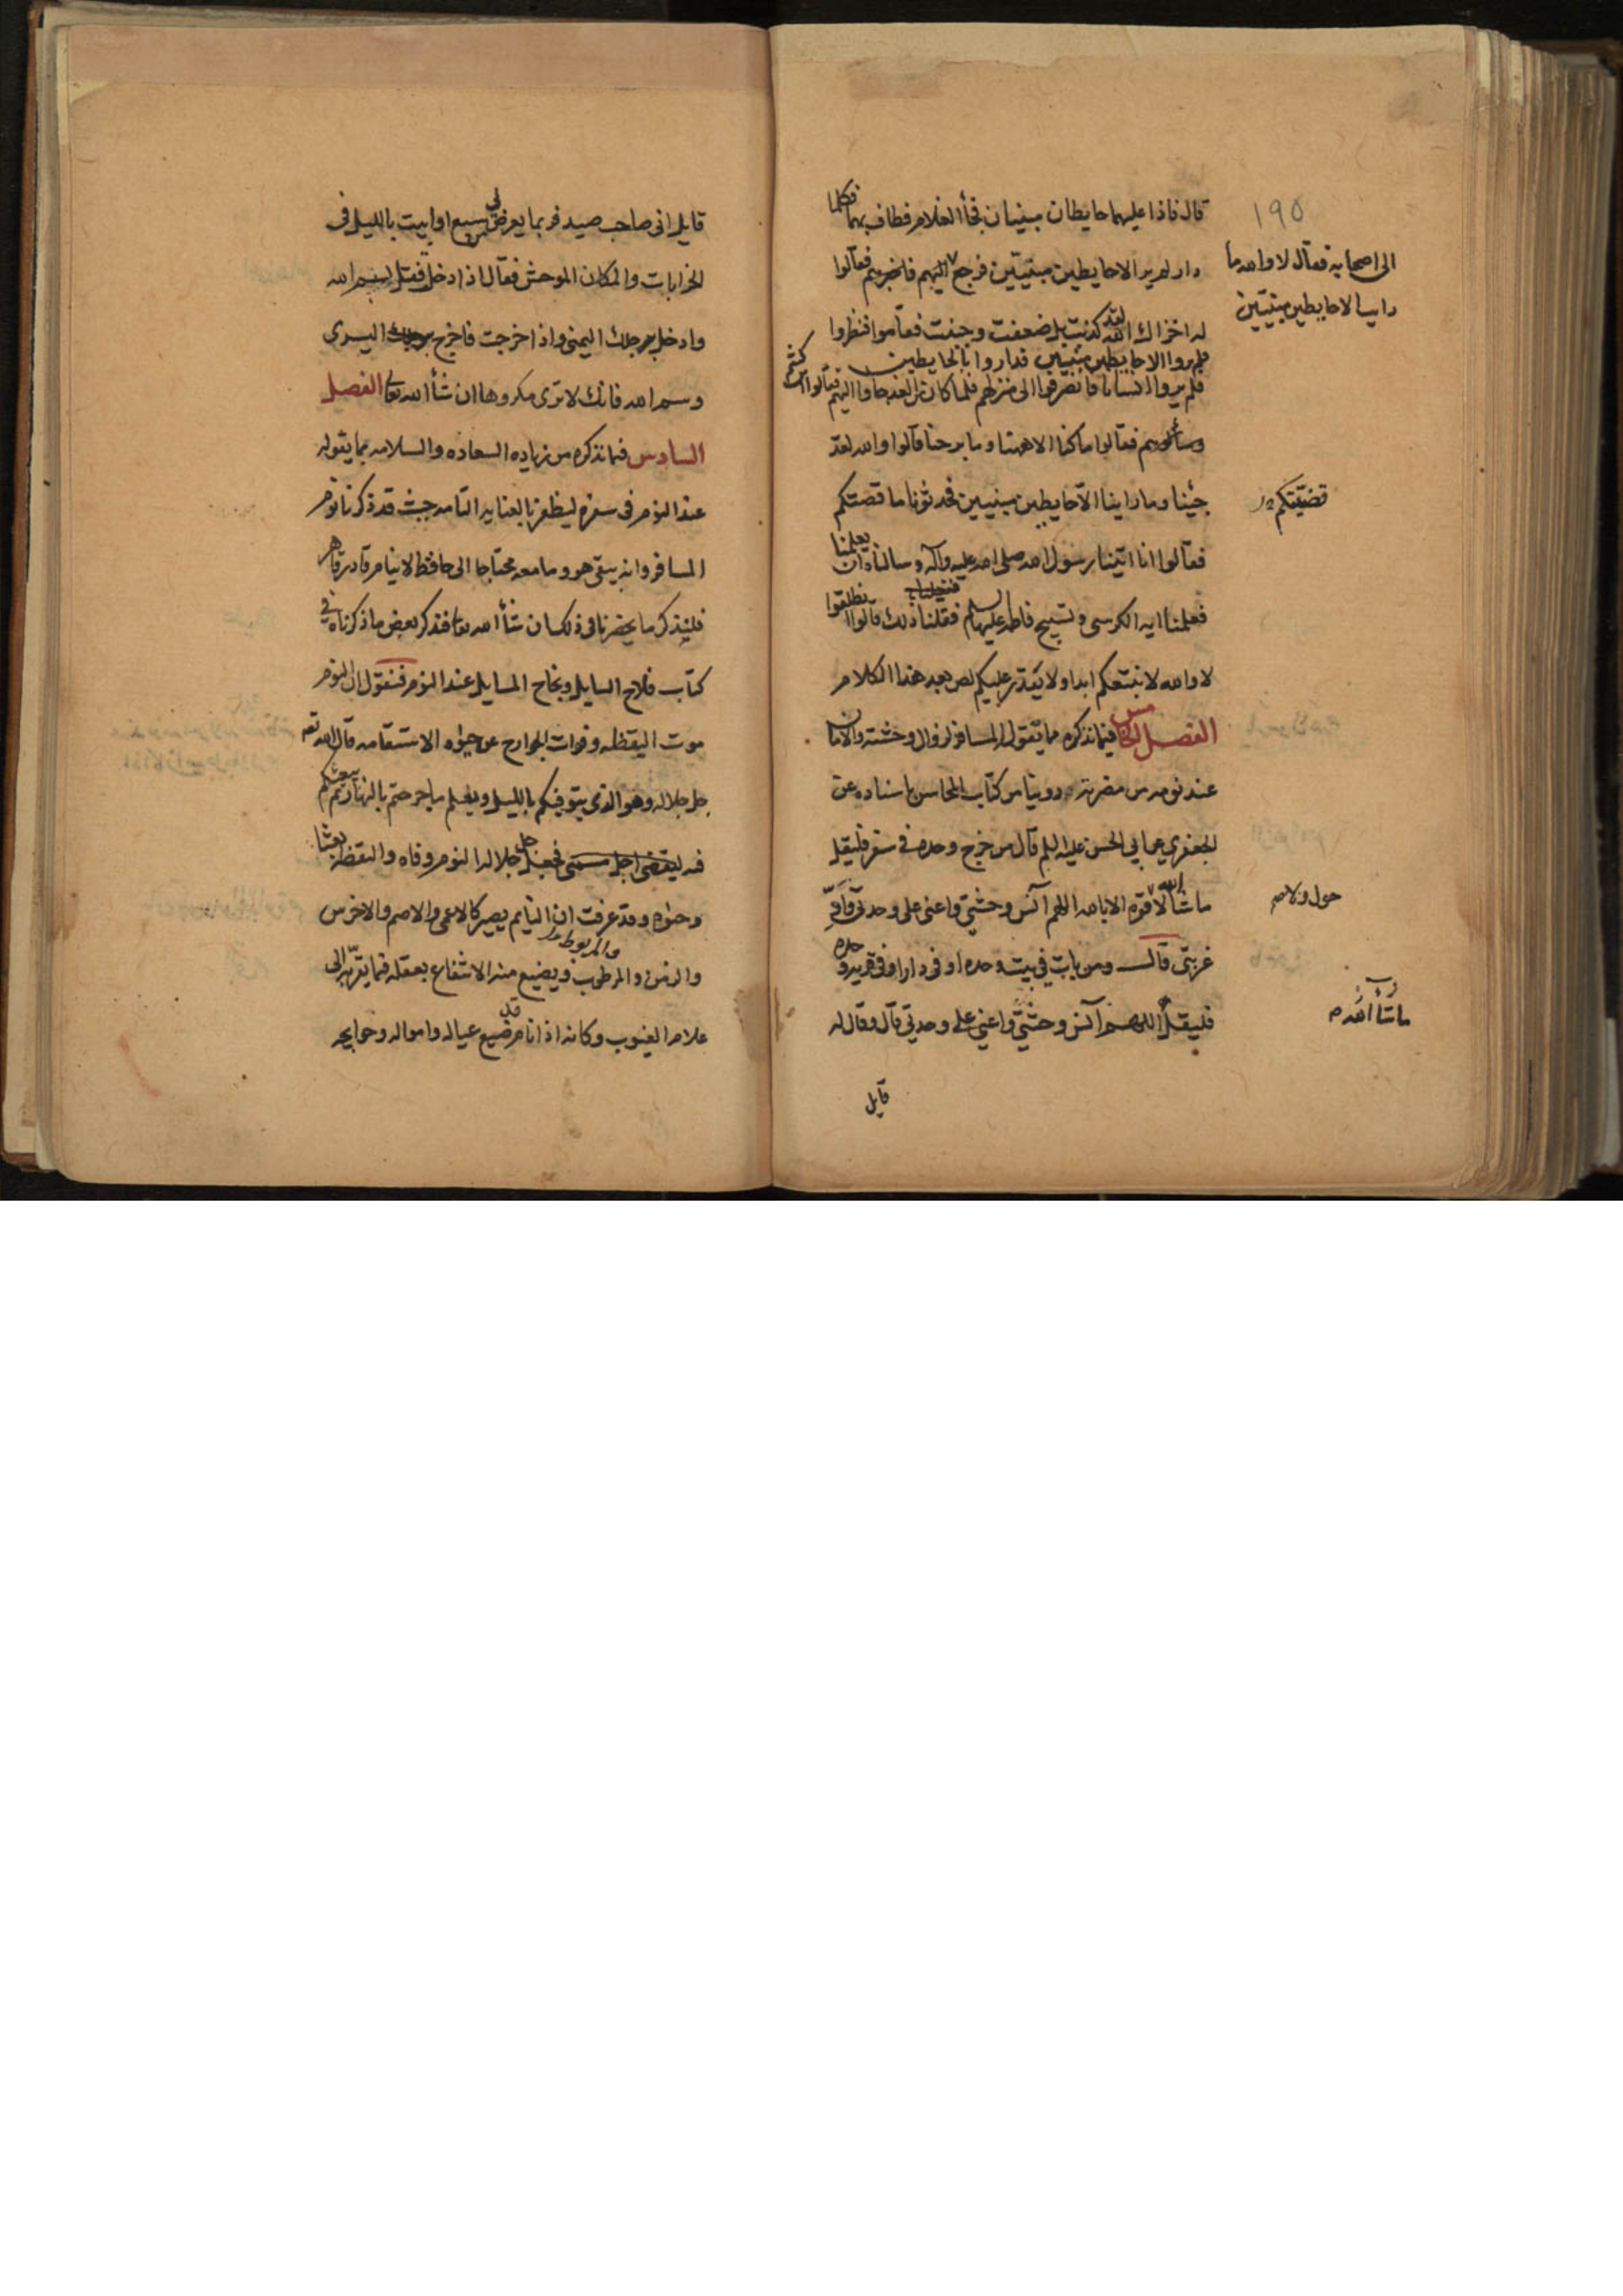 ١٩٥
قال فاذا عليهما حايطان مبنيان فجأ الغلام فطاف بهما فكلما
الى اصحابه فقال لا والله ما
رايت الا حايطين مبنيين
دار لم ير الا حايطين مبنيين فرجع اليهم فاخبرهم فقالوا
له اخزاك الله لقد كذبت بل ضعفت وجبنت فقاموا فنظروا
فلم يروا الا حايطين مبنيين فداروا بالحايطين
فلم يروا انسانا فانصرفوا الى منزلهم فلما كان من الغد جاوا اليهم فقالوا اين كنتم
وسألوهم فقالوا ما كنا الا ههنا وما برحنا قالوا والله لقد
جئنا وما راينا الا حايطين مبنيين فحدثونا ما قصتكم
قضيتكم
فقالوا انا اتينا رسول الله صلى الله عليه وآله وسالناه ان يعلمنا
فعلمنا اية الكرسي وتسبيح فاطمه عليها السلم فقلنا ذلك قالوا انطلقوا
لا والله لا نتبعكم ابدا ولا يقدر عليكم لص بعد هذا الكلام
الفصل الخامس فيما نذكره مما يقول المسافر لزوال وحشته والامان
عند نومه من مضرته روينا من كتاب المحاسن باسناده عن
الجعفري عن ابي الحسن عليه السلم قال من خرج وحده في سفر فليقل
ما شا الله لا قوة الا بالله اللهم آنس وحشتي واعني على وحدتي وادّ
حول ولا
غربتي قال ومن بات في بيت وحده او في دار او في قرية وحده
فليقل اللهم آنس وحشتي واعني على وحدتي قال وقال له
ما شأ الله
قايل
قايل اني صاحب صيد فربما يعرض لي سبع او ابيت بالليل في
الخرابات والمكان الموحش فقال اذا دخلت فقل بسم الله
وادخل برجلك اليمنى واذا خرجت فاخرج برجلك اليسرى
وسم الله فانك لا ترى مكروها ان شأ الله تعا الفصل
السادس فيما نذكره من زيادة السعاده والسلامه بما يقوله
عند النوم في سفره ليظفر بالعنايه التامه حيث قد ذكرنا نوم
المسافر وانه يبقى هو وما معه محتاجا الى حافظ لا ينام قادر قاهر
فلنذكر ما يحضرنا في ذلك ان شأ الله تعا فنذكر بعض ما ذكرناه في
كتاب فلاح السايل ونجاح المسايل عند النوم فنقول ان النوم
موت اليقظه وفوات الجوارح عن حياة الاستقامه قال الله تعا
جل جلاله وهو الذي يتوفيكم بالليل ويعلم ما جرحتم بالنهار ثم يبعثكم
فيه ليقضى اجل مسمى فجعل جل جلاله النوم وفاه واليقظة بعثا
وحيوة وقد عرفت ان النايم يصير كالاعمى والاصم والاخرس
والزمن والمربوط ويضيع منه الانتفاع بعقله فيما يقربه الى
علام الغيوب وكانه اذا نام قد ضيع عياله وامواله وحوايجه